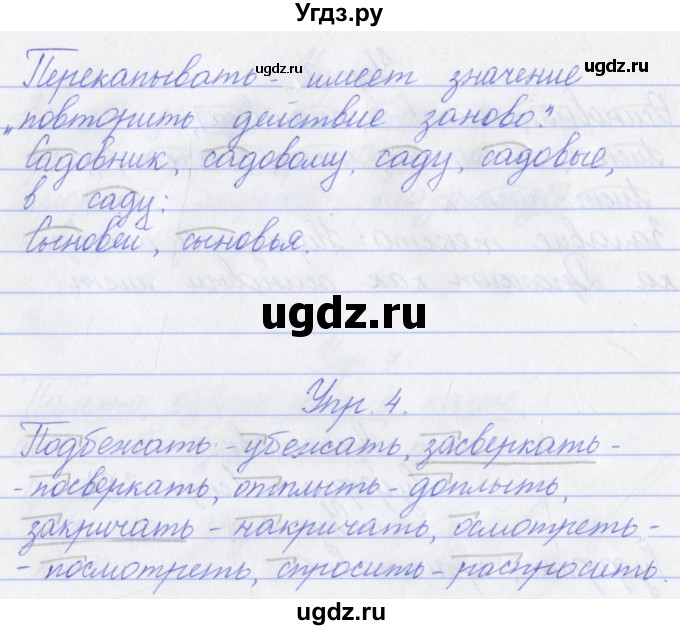 Угдз.ру
ugdz.ru
ugdz.ru
Перекапывать - имеет значение
„повторить действие заново."
Садовник, садовому, саду, садовые,
в саду;
Сыновей, сыновья.
ugdz.ru
Упр. 4.
Подбежать - убежать, засверкать -
- посверкать, отплыть - доплыть,
закричать - накричать, осмотреть -
- посмотреть, спросить - распросить.
ugdz.ru
ugdz.ru